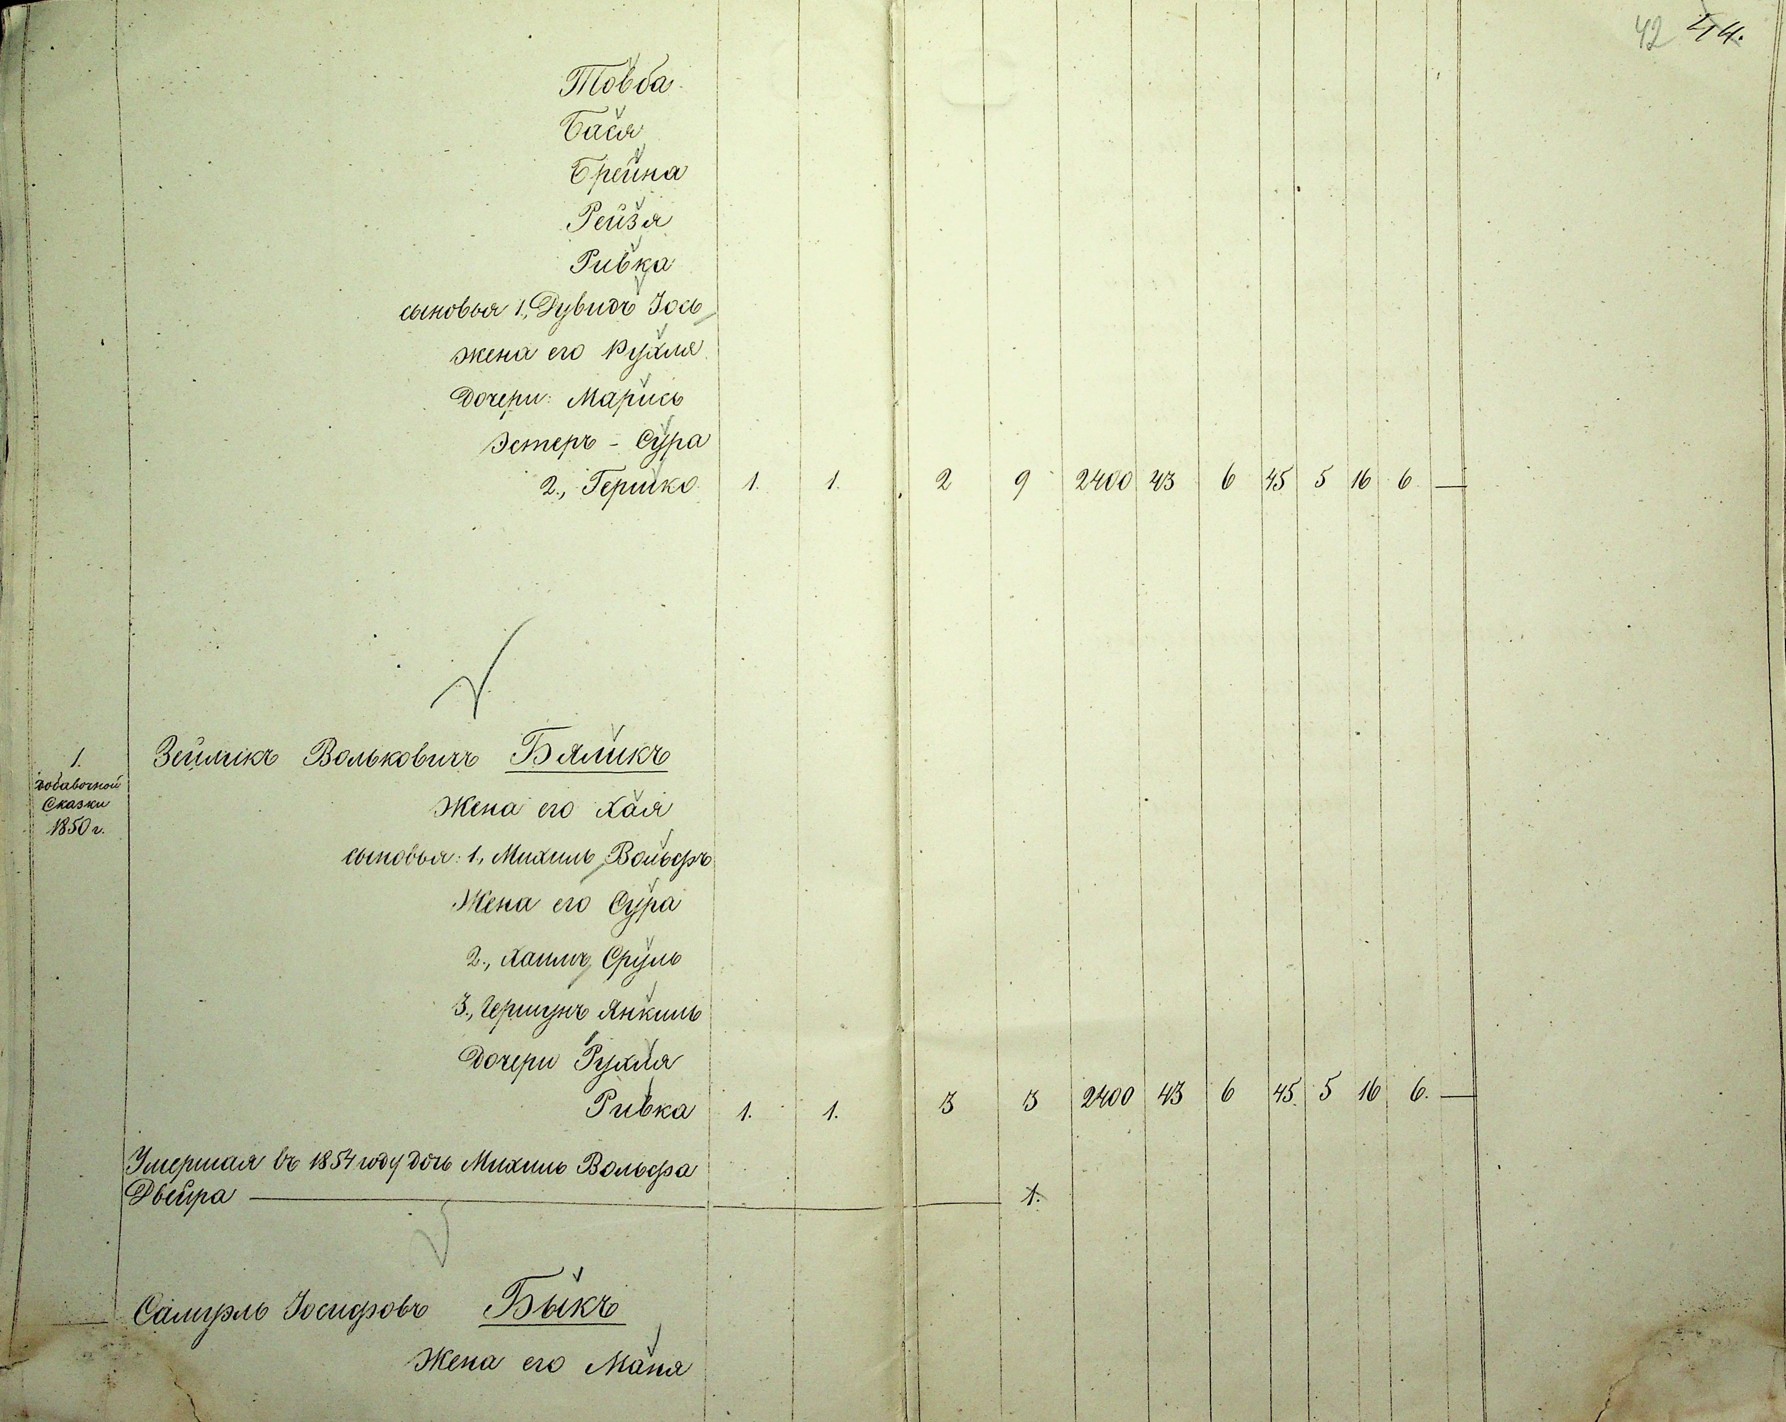 42 44.
Товба
Бася
Брейна
Рейзя
Ривка
сыновья 1., Дувидъ Іось
жена его Рухля
Дочери: Марись
Эстеръ - Сура
2., Гершко 1. 1. 2 9 2400 43 6 45 5 16 6 —
1. добавочной Сказки 1850 г.
Зейликъ Вольковичъ Бяликъ
Жена его Хая
сыновья: 1., Михиль Вольфъ
Жена его Сура
2., Хаимъ Сруль
3., Гершунъ Янкиль
Дочери Рухля
Ривка 1. 1. 3 3 2400 43 6 45. 5 16 6. —
Умершая въ 1854 году дочь Михиль Вольфа
Двейра — 1.
— Самуэль Іосифовъ Быкъ
Жена его Маня